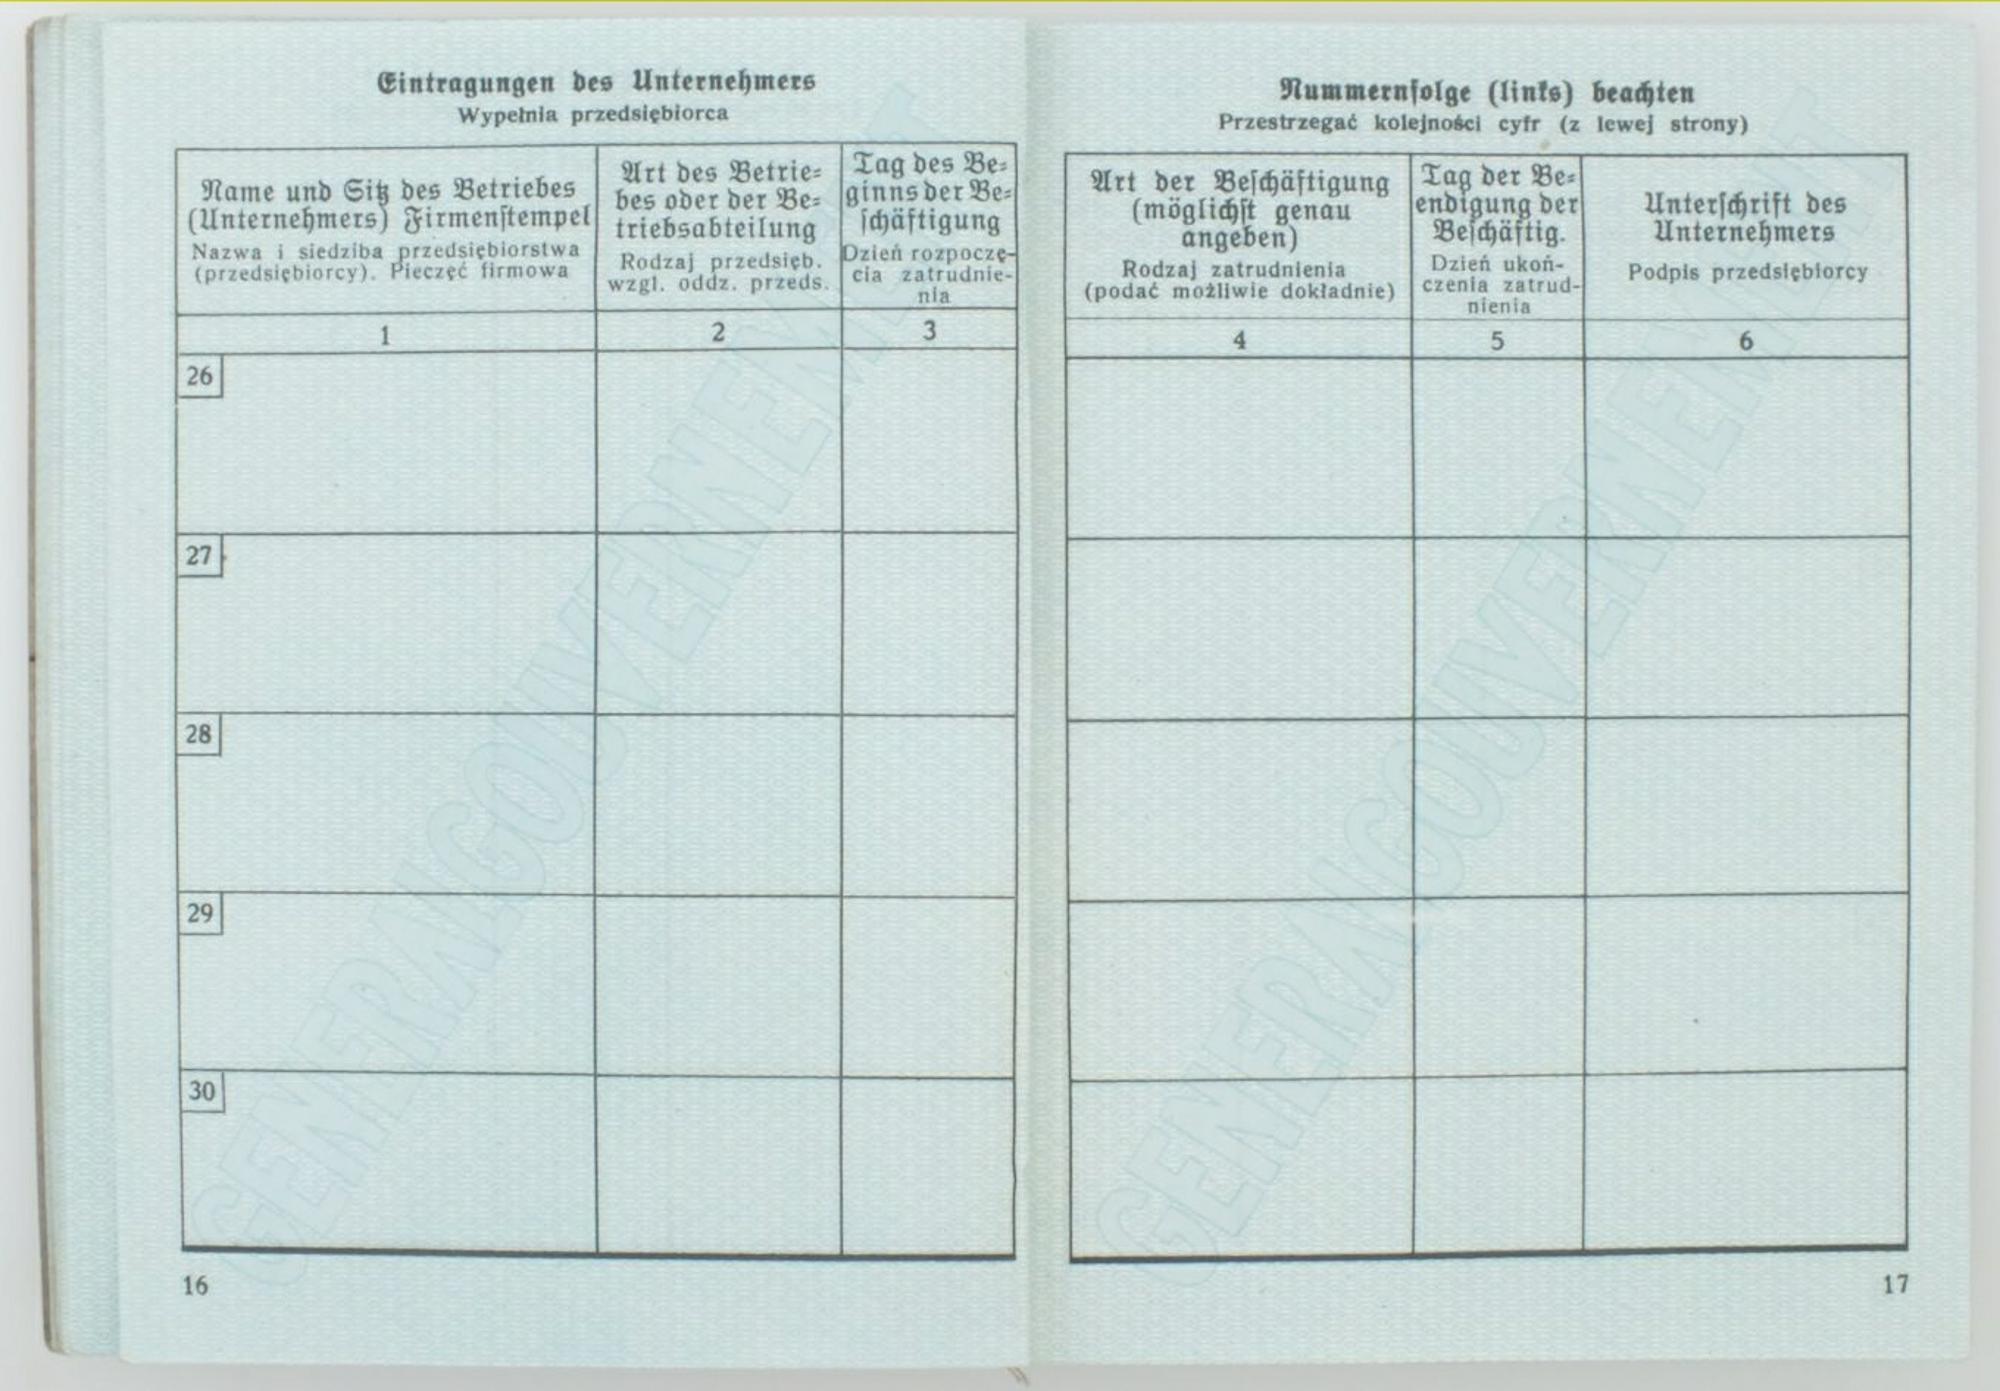 Eintragungen des Unternehmers
Wypełnia przedsiębiorca
Name und Sitz des Betriebes
(Unternehmers) Firmenstempel
Nazwa i siedziba przedsiębiorstwa
(przedsiębiorcy). Pieczęć firmowa
Art des Betrie-
bes oder der Be-
triebsabteilung
Rodzaj przedsięb.
wzgl. oddz. przeds.
Tag des Be-
ginns der Be-
schäftigung
Dzień rozpoczę-
cia zatrudnie-
nia
1
2
3
26
27
28
29
30
16
GENERALGOUVERNEMENT
Nummernfolge (links) beachten
Przestrzegać kolejności cyfr (z lewej strony)
Art der Beschäftigung
(möglichst genau
angeben)
Rodzaj zatrudnienia
(podać możliwie dokładnie)
Tag der Be-
endigung der
Beschäftig.
Dzień ukoń-
czenia zatrud-
nienia
Unterschrift des
Unternehmers
Podpis przedsiębiorcy
4
5
6
17
GENERALGOUVERNEMENT